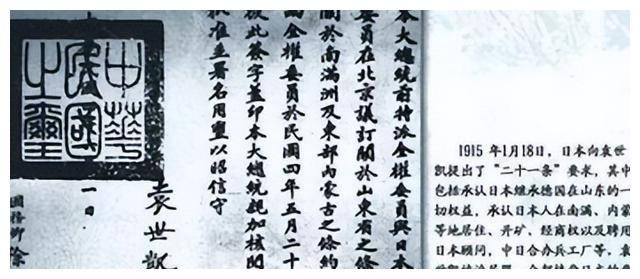 本大總統前特派全權委員與日本
委員在北京議訂關於山東省之條
關於南滿洲及東部內蒙古之條約
兩全權委員於民國四年五月二十
彼此簽字蓋印本大總統親加核閱
批准並署名用璽以昭信守
袁世凱
一日
中華民國之璽
國務卿徐
1915 年1月18日，日本向袁世
凯提出了“二十一条”要求，其中
包括承认日本继承德国在山东的一
切权益，承认日本人在南满、内蒙
等地居住、开矿、经商权以及聘用
日本顾问，中日合办兵工厂等，袁